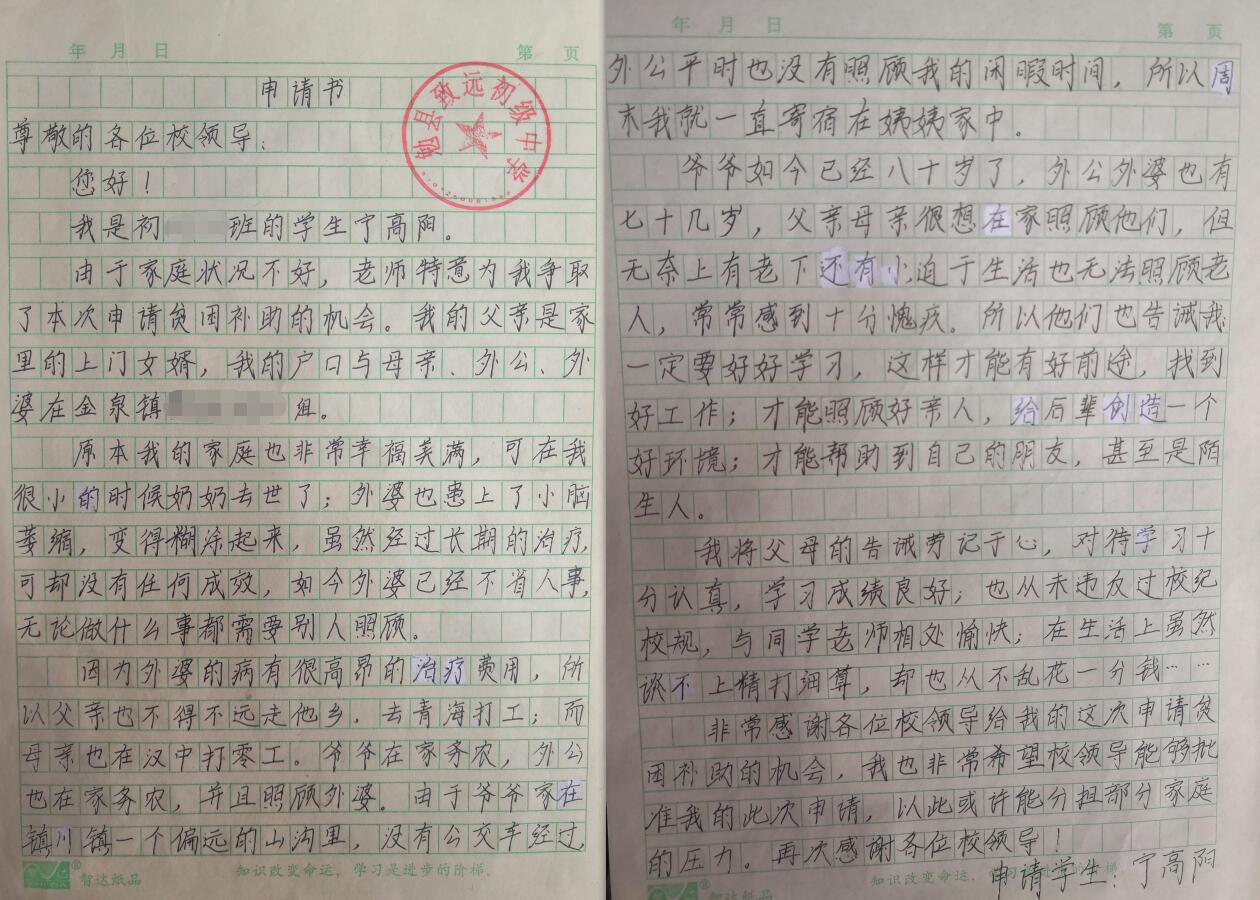 年 月 日
第 页
申请书
勉县致远初级中学
尊敬的各位校领导：
您好！
我是初 班的学生宁高阳。
由于家庭状况不好，老师特意为我争取
了本次申请贫困补助的机会。我的父亲是家
里的上门女婿，我的户口与母亲、外公、外
婆在金泉镇 组。
原本我的家庭也非常幸福美满，可在我
很小的时候奶奶去世了；外婆也患上了小脑
萎缩，变得糊涂起来，虽然经过长期的治疗，
可却没有任何成效，如今外婆已经不省人事，
无论做什么事都需要别人照顾。
因为外婆的病有很高昂的治疗费用，所
以父亲也不得不远走他乡，去青海打工；而
母亲也在汉中打零工。爷爷在家务农，外公
也在家务农，并且照顾外婆。由于爷爷家在
镇川镇一个偏远的山沟里，没有公交车经过，
智达纸品
知识改变命运，学习是进步的阶梯。
年 月 日
第 页
外公平时也没有照顾我的闲暇时间，所以周
末我就一直寄宿在姨姨家中。
爷爷如今已经八十岁了，外公外婆也有
七十几岁，父亲母亲很想在家照顾他们，但
无奈上有老下还有小，迫于生活也无法照顾老
人，常常感到十分愧疚。所以他们也告诫我
一定要好好学习，这样才能有好前途，找到
好工作；才能照顾好亲人，给后辈创造一个
好环境；才能帮助到自己的朋友，甚至是陌
生人。
我将父母的告诫劳记于心，对待学习十
分认真，学习成绩良好；也从未违反过校纪
校规，与同学老师相处愉快；在生活上虽然
谈不上精打细算，却也从不乱花一分钱……
非常感谢各位校领导给我的这次申请贫
困补助的机会，我也非常希望校领导能够批
准我的此次申请，以此或许能分担部分家庭
的压力。再次感谢各位校领导！
申请学生：宁高阳
智达纸品
知识改变命运，学习是进步的阶梯